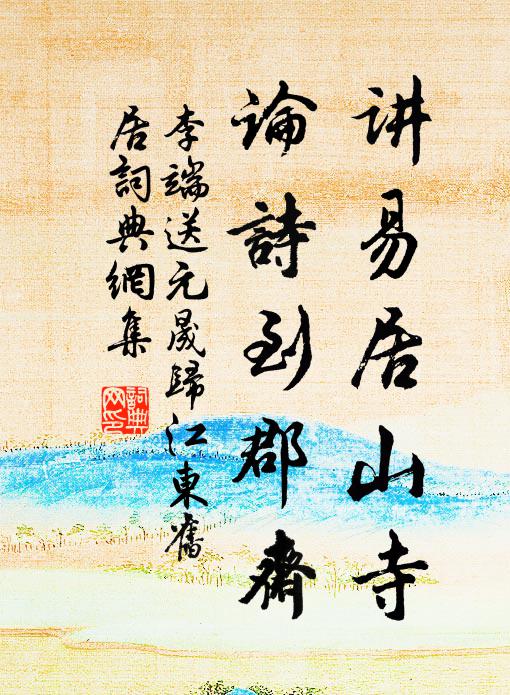 讲易居山寺
論詩到郡齋
李端送元晟歸江東舊
居詞典網集
詞典
网印